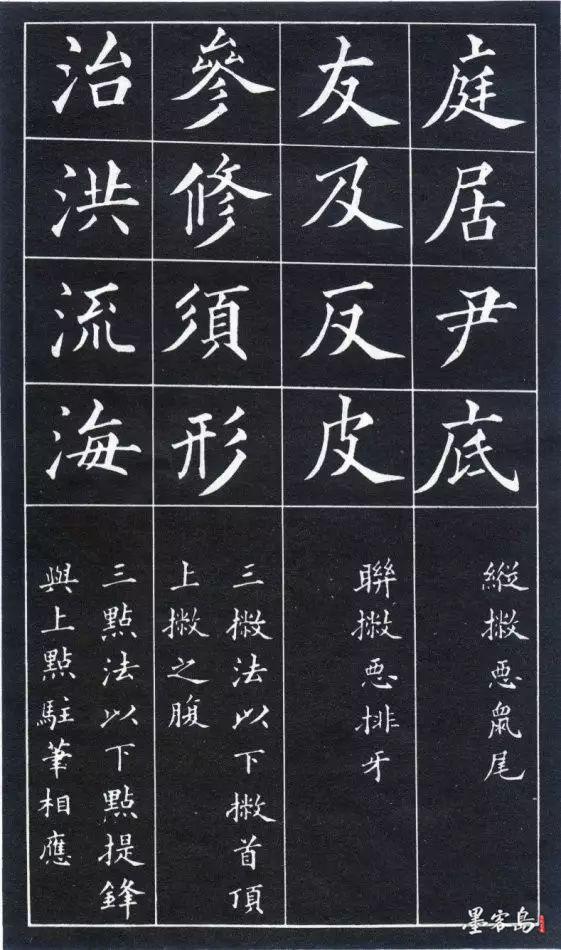 庭居尹底
縱撇惡鼠尾
友及反皮
聯撇惡排牙
參修須形
三撇法以下撇首頂
上撇之腹
治洪流海
三點法以下點提鋒
與上點駐筆相應
墨客島